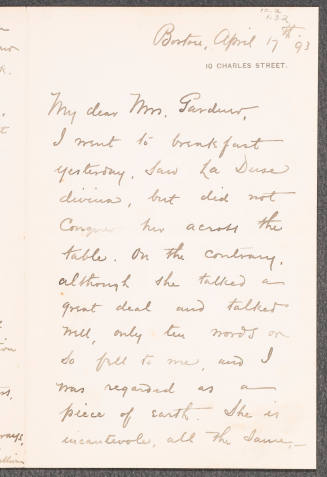 Boston, April 17th '93
10 CHARLES STREET.
My dear Mrs. Gardner,
I went to breakfast
yesterday, saw La Duse
divina, but did not
conquer her across the
table. On the contrary,
although she talked a
great deal and talked
well, only ten words or
so fell to me, and I
was regarded as a
piece of earth. She is
incantevole, all the same,—